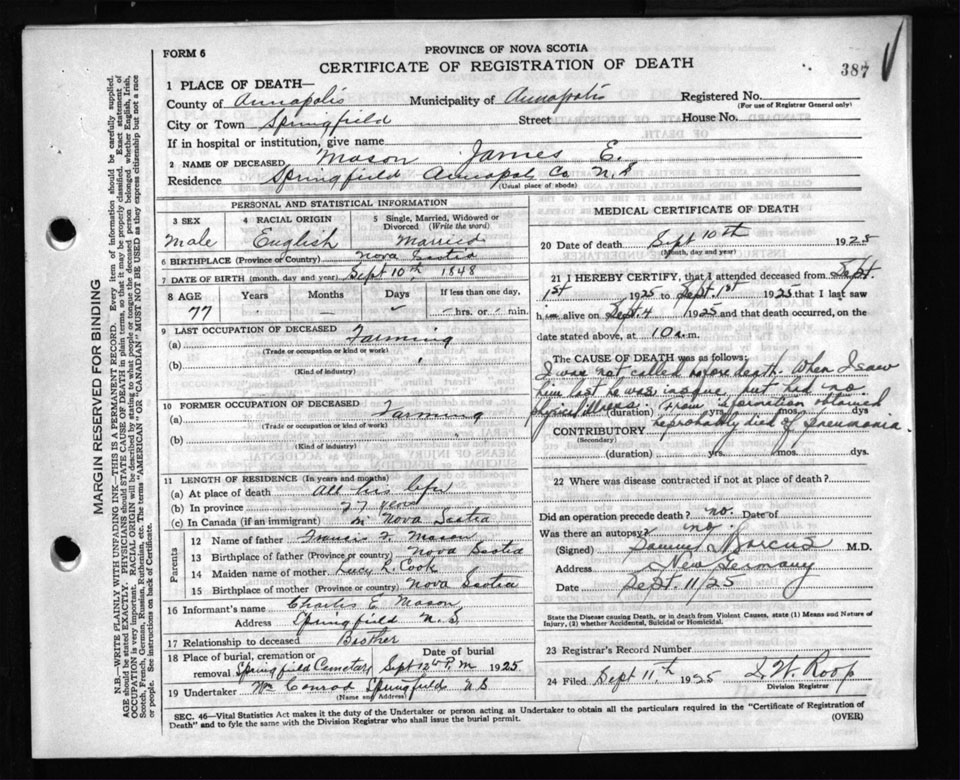 FORM 6
PROVINCE OF NOVA SCOTIA
CERTIFICATE OF REGISTRATION OF DEATH
387
1 PLACE OF DEATH—
County of Annapolis Municipality of Annapolis Registered No.
(For use of Registrar General only)
City or Town Springfield Street House No.
If in hospital or institution, give name
2 NAME OF DECEASED Mason James E.
Residence Springfield Annapolis Co N.S
(Usual place of abode)
PERSONAL AND STATISTICAL INFORMATION
3 SEX Male
4 RACIAL ORIGIN English
5 Single, Married, Widowed or Divorced (Write the word) Married
6 BIRTHPLACE (Province or Country) Nova Scotia
7 DATE OF BIRTH (month, day and year) Sept 10th 1848
8 AGE Years Months Days If less than one day,
77 — — — — hrs. or — min.
9 LAST OCCUPATION OF DECEASED
(a) Farming
(Trade or occupation or kind or work)
(b)
(Kind of industry)
10 FORMER OCCUPATION OF DECEASED
(a) Farming
(Trade or occupation or kind of work)
(b)
(Kind of industry)
11 LENGTH OF RESIDENCE (In years and months)
(a) At place of death All his life
(b) In province 77 years
(c) In Canada (if an immigrant) in Nova Scotia
Parents
12 Name of father Mason
13 Birthplace of father (Province or country) Nova Scotia
14 Maiden name of mother Lucy R. Cook
15 Birthplace of mother (Province or country) Nova Scotia
16 Informant's name Charles E. Mason
Address Springfield N.S
17 Relationship to deceased Brother
18 Place of burial, cremation or removal Springfield Cemetary Date of burial Sept 12th P.M 1925
19 Undertaker Wm Conrad Springfield N S
(Name and Address)
MEDICAL CERTIFICATE OF DEATH
20 Date of death Sept 10th 1925
(Month, day and year)
21 I HEREBY CERTIFY, that I attended deceased from Sept.
1st 1925 to Sept. 1st 1925 that I last saw
him alive on Sept. 4 1925 and that death occurred, on
date stated above, at 10 a.m.
The CAUSE OF DEATH was as follows:
I was not called before death. When I saw
him last he was insane, but had no
physical illness. From information obtained
(duration) yrs. mos. dys
he probably died of pneumonia.
CONTRIBUTORY
(Secondary)
(duration) yrs. mos. dys.
22 Where was disease contracted if not at place of death?
Did an operation precede death? no. Date of
Was there an autopsy? no.
(Signed) Marcus M.D.
Address New Germany
Date Sept. 11/25
State the Disease causing Death, or in death from Violent Causes, state (1) Means and Nature of
Injury, (2) whether Accidental, Suicidal or Homicidal.
23 Registrar's Record Number
24 Filed Sept 11th 1925 Roop
Division Registrar
SEC. 46—Vital Statistics Act makes it the duty of the Undertaker or person acting as Undertaker to obtain all the particulars required in the "Certificate of Registration of
Death" and to fyle the same with the Division Registrar who shall issue the burial permit.
(OVER)
MARGIN RESERVED FOR BINDING
N.B.—WRITE PLAINLY WITH UNFADING INK—THIS IS A PERMANENT RECORD. Every item of information should be carefully supplied.
AGE should be stated EXACTLY. PHYSICIANS should STATE CAUSE OF DEATH in plain terms, so that it may be properly classified. Exact statement of
OCCUPATION is very important. RACIAL ORIGIN will be described by stating to what people or tongue the deceased person belonged whether English, Irish,
Scotch, French, German, Russian, Ruthenian, etc. The terms "AMERICAN" OR "CANADIAN" MUST NOT BE USED as they express citizenship but not a race
or people. See instructions on back of Certificate.